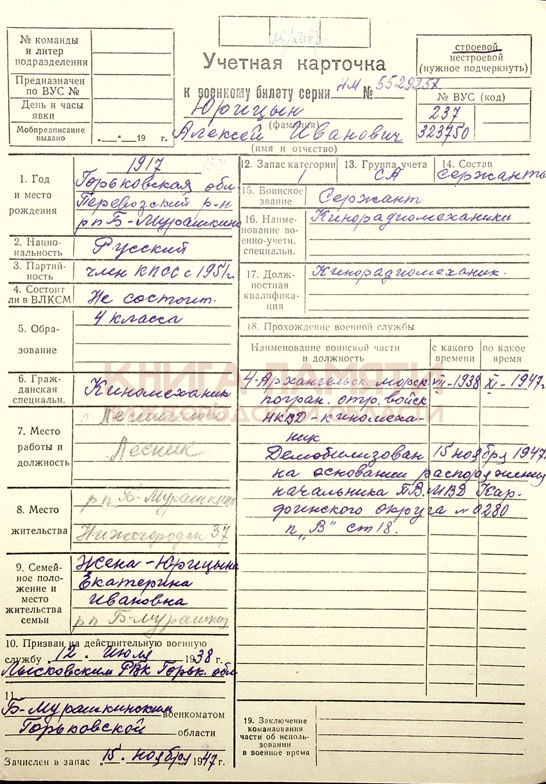 № команды
и литер
подразделения
Предназначен
по ВУС №
День и часы
явки
Мобпредписание
выдано „ “ 19 г.
Учетная карточка
к военному билету серии НМ № 5529257
Юрицын
(фамилия)
Алексей Иванович
(имя и отчество)
строевой
нестроевой
(нужное подчеркнуть)
№ ВУС (код)
237
323750
1. Год
и место
рождения
1917
Горьковская обл
Перевозский р-н
рп Б-Мурашкино
2. Нацио-
нальность
Русский
3. Партий-
ность
член КПСС с 1951г.
4. Состоит
ли в ВЛКСМ
Не состоит.
5. Обра-
зование
4 класса
6. Граж-
данская
специальн.
Киномеханик
7. Место
работы и
должность
Лесник
8. Место
жительства
рп Б-Мурашкино
37
9. Семей-
ное поло-
жение и
место
жительства
семьи
Жена - Юрицына
Екатерина
Ивановна
рп Б-Мурашкин
10. Призван на действительную военную
службу 12. Июля 1938 г.
Лысковским РВК Горьк. обл.
11.
Б-Мурашкинским военкоматом
Горьковской области
Зачислен в запас 15. ноября 1947 г.
12. Запас категории
1
13. Группа учета
СА
14. Состав
Сержанты
15. Воинское
звание
Сержант
16. Наиме-
нование во-
енно-учетн.
специальн.
Кинорадиомеханики
17. Долж-
ностная
квалифика-
ция
Кинорадиомеханик.
18. Прохождение военной службы
Наименование воинской части
и должность
с какого
времени
по какое
время
4-Архангельск. морск. VII-1938 XI-1947.
погран. отр. войск
НКВД - киномеха-
ник
Демобилизован 15 ноября 1947.
на основании распоряжения
начальника П.В. МВД
округа № 0280
п „В“ ст 18.
19. Заключение
командования
части об исполь-
зовании
в военное время
КНИГА ПАМЯТИ